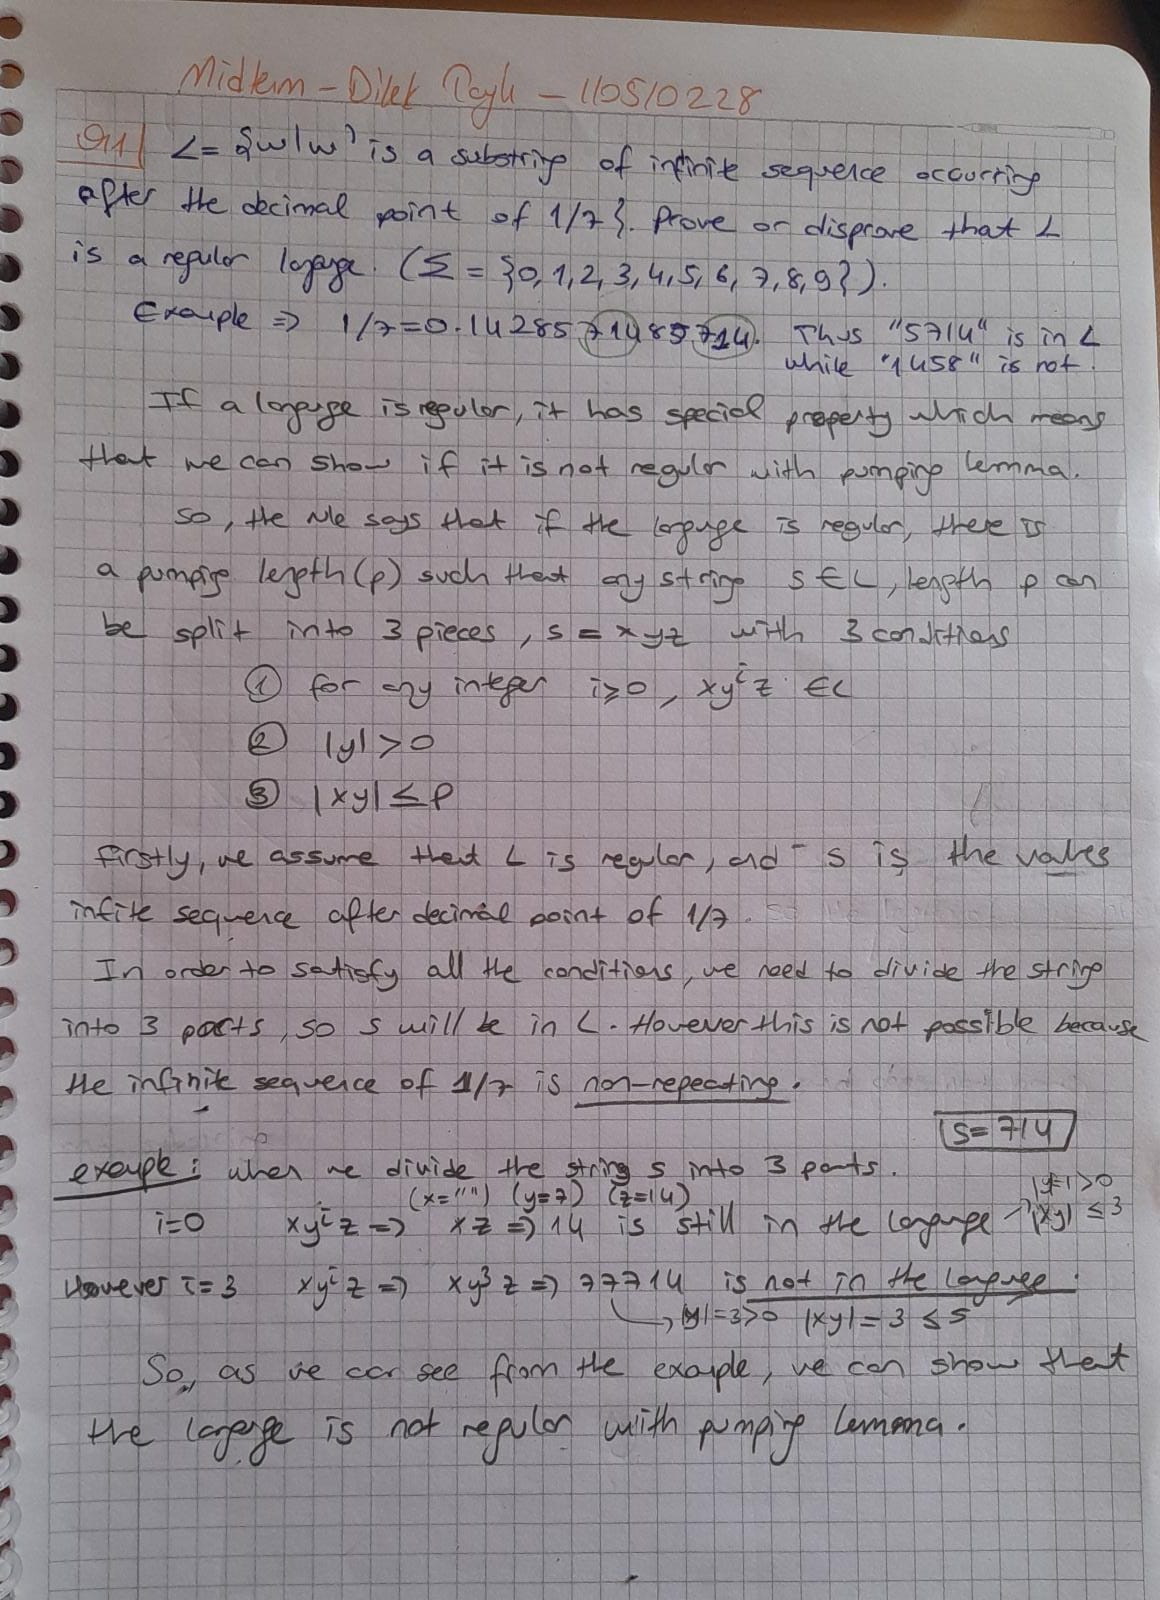 Midterm - Dilek Taylı - 110510228
Qu1 L= {w|w' is a substring of infinite sequence occurring
after the decimal point of 1/7}. Prove or disprove that L
is a regular language. (Σ = {0,1,2,3,4,5,6,7,8,9}).
Example => 1/7=0.1428571485714. Thus "5714" is in L
while "1458" is not.
If a language is regular, it has special property which means
that we can show if it is not regular with pumping lemma.
So, the rule says that if the language is regular, there is
a pumping length (p) such that any string s ∈ L, length p can
be split into 3 pieces, s = xyz with 3 conditions
① for any integer i≥0, xyⁱz ∈ L
② |y| > 0
③ |xy| ≤ p
firstly, we assume that L is regular, and s is the values
infite sequence after decimal point of 1/7.
In order to satisfy all the conditions, we need to divide the string
into 3 parts, so s will be in L. However this is not possible because
the infinite sequence of 1/7 is non-repeating.
s=714
example: when we divide the string s into 3 parts.
(x="") (y=7) (z=14) |y|=1>0
i=0 xyⁱz => xz => 14 is still in the language -> |xy| ≤ 3
However i=3 xyⁱz => xy³z => 77714 is not in the language.
-> |y|=3>0 |xy|=3 ≤ 5
So, as we can see from the example, we can show that
the language is not regular with pumping lemma.